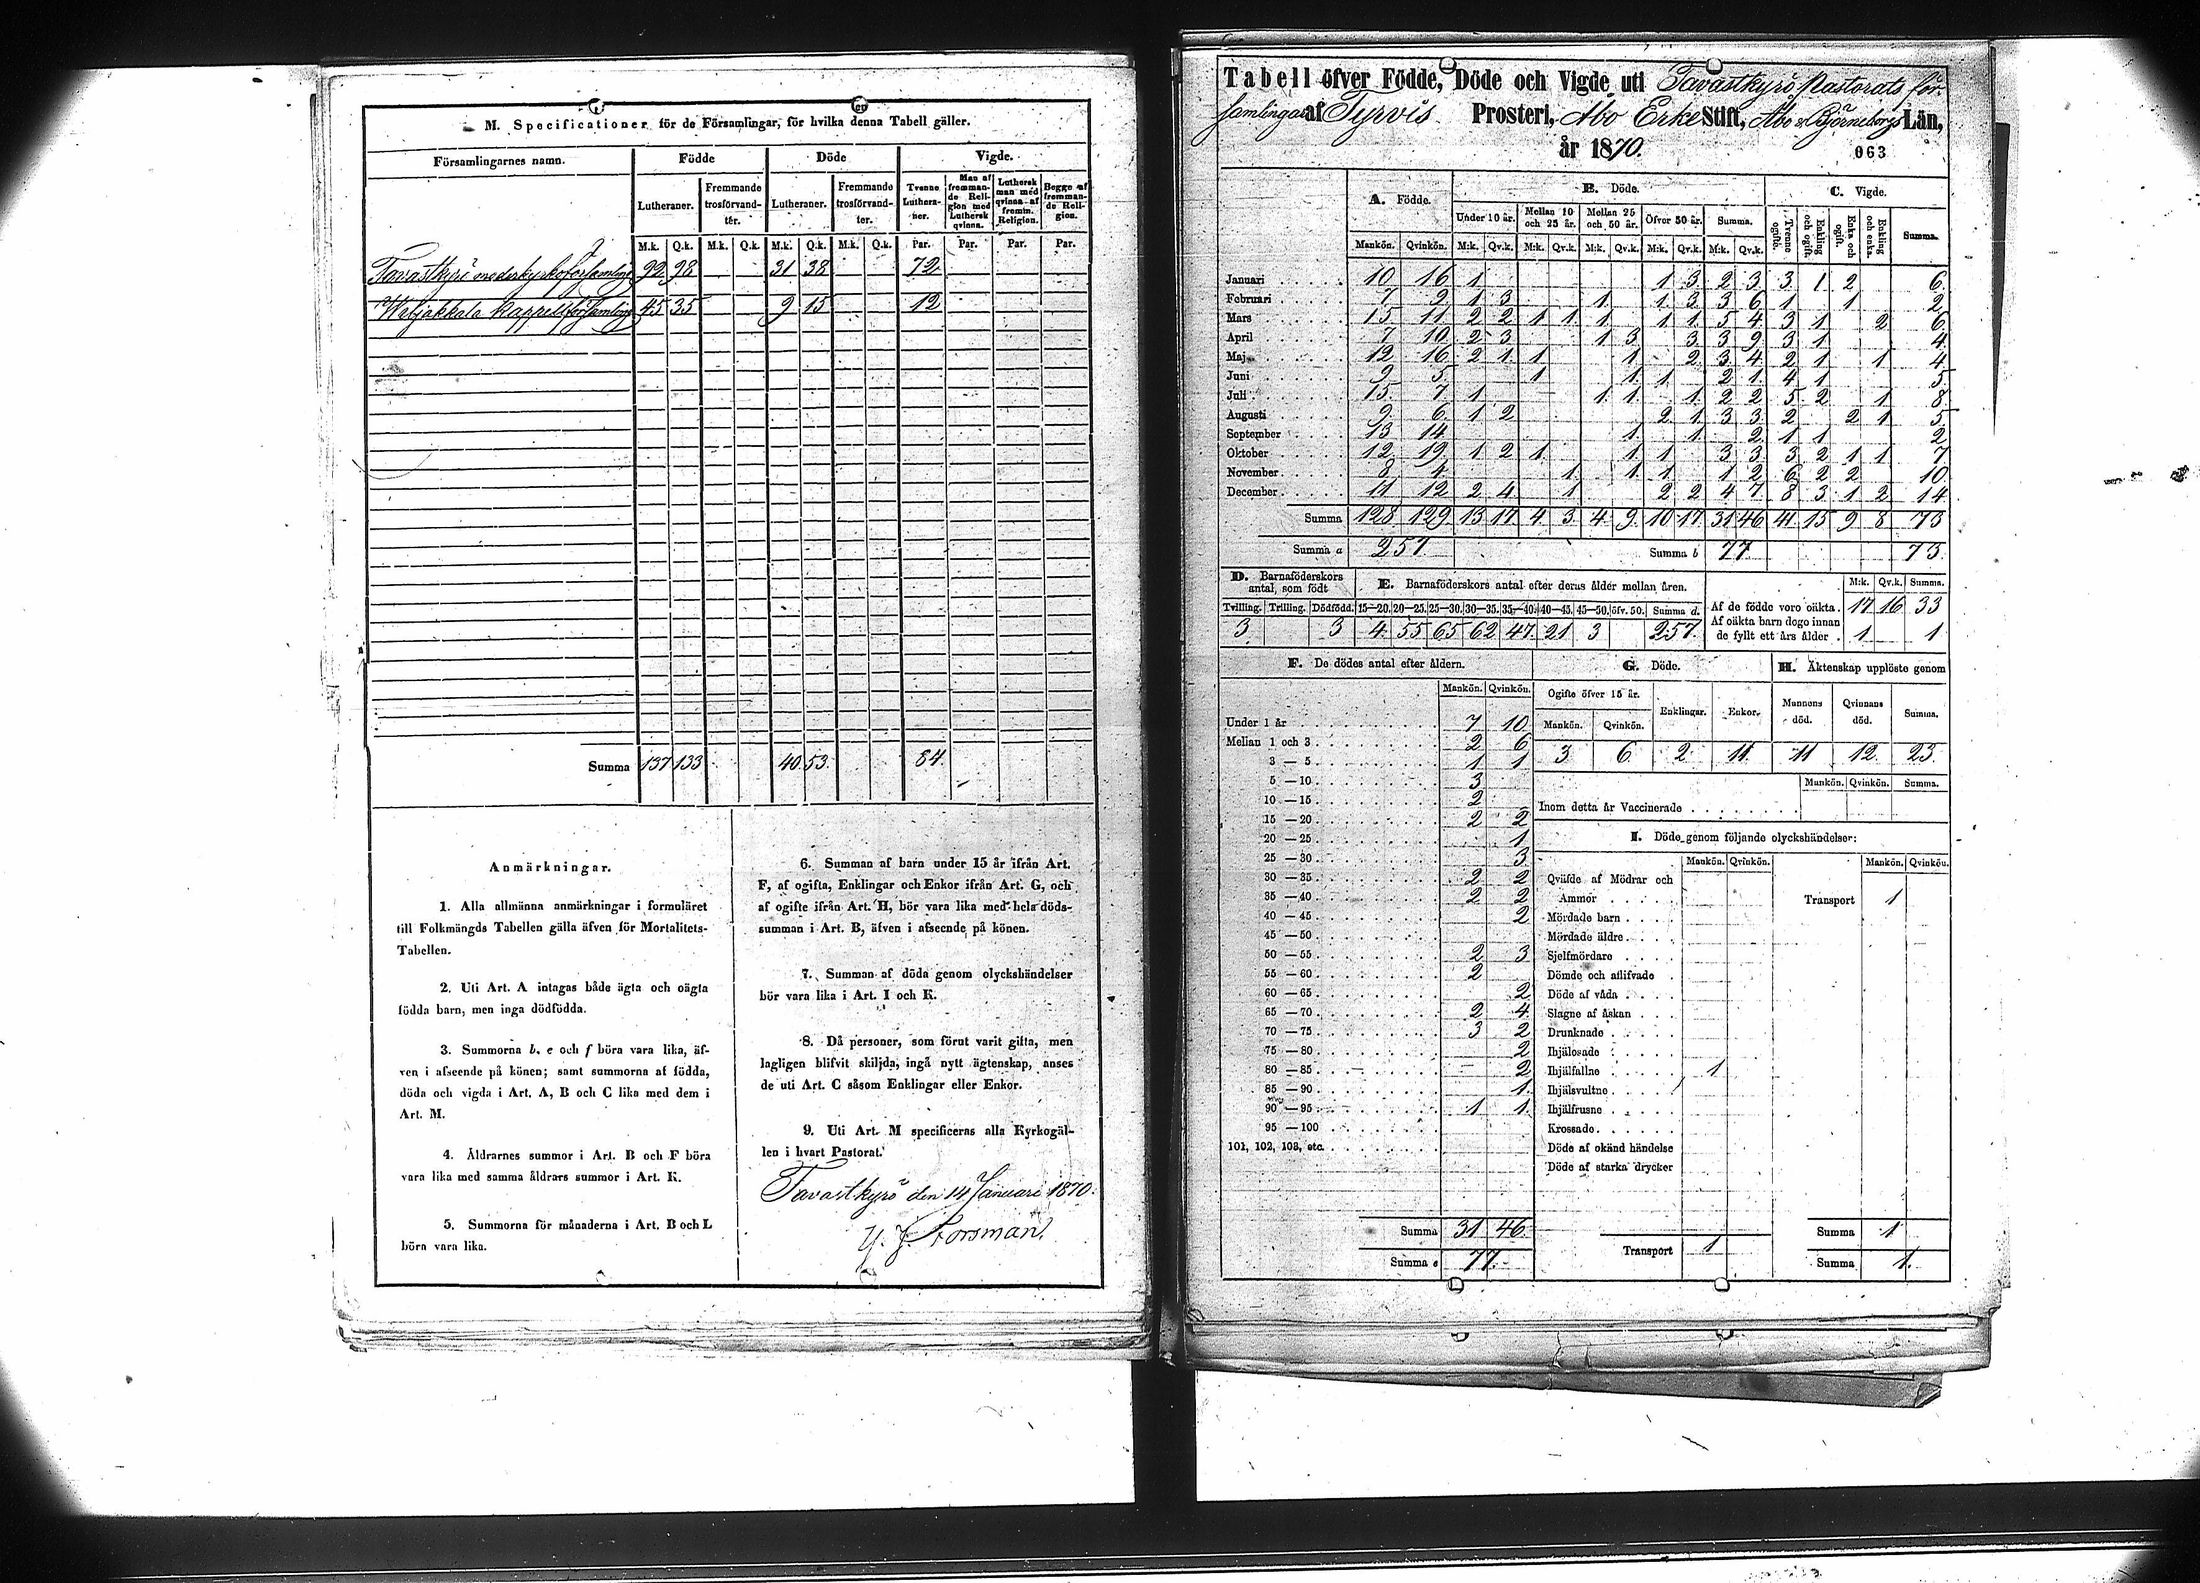 M. Specificationer för de Församlingar, för hvilka denna Tabell gäller.
Församlingarnes namn. Födde Döde Vigde.
Lutheraner. Fremmande trosförvandter. Lutheraner. Fremmande trosförvandter. Tvenne Lutheraner. Man af fremmande Religion med Luthersk qvinna. Luthersk man med qvinna af fremm. Religion. Begge af fremmande Religion.
M.k. Q.k. M.k. Q.k. M.k. Q.k. M.k. Q.k. Par. Par. Par. Par.
Tavastkyrö moderkyrkoförsamling 92 98 31 38 72
Kappellförsamling 45 35 9 15 12
Summa 137 133 40 53 84
Anmärkningar.
1. Alla allmänna anmärkningar i formuläret
till Folkmängds Tabellen gälla äfven för Mortalitets-
Tabellen.
2. Uti Art. A intagas både ägta och oägta
födda barn, men inga dödfödda.
3. Summorna b, e och f böra vara lika, äf-
ven i afseende på könen; samt summorna af födda,
döda och vigda i Art. A, B och C lika med dem i
Art. M.
4. Åldrarnes summor i Art. B och F böra
vara lika med samma åldrars summor i Art. K.
5. Summorna för månaderna i Art. B och L
böra vara lika.
6. Summan af barn under 15 år ifrån Art.
F, af ogifta, Enklingar och Enkor ifrån Art. G, och
af ogifte ifrån Art. H, bör vara lika med hela döds-
summan i Art. B, äfven i afseende på könen.
7. Summan af döda genom olyckshändelser
bör vara lika i Art. I och K.
8. Då personer, som förut varit gifta, men
lagligen blifvit skiljda, ingå nytt ägtenskap, anses
de uti Art. C såsom Enklingar eller Enkor.
9. Uti Art. M specificeras alla Kyrkogäl-
len i hvart Pastorat.
Tavastkyrö den 14 Januari 1870.
Y. J. Forsman.
Tabell öfver Födde, Döde och Vigde uti Tavastkyrö Pastorats för-
samlingar af Tyrvis Prosteri, Åbo Erke Stift, Åbo o. Björneborgs Län,
år 1870.
063
A. Födde. B. Döde. C. Vigde.
Under 10 år. Mellan 10 och 25 år. Mellan 25 och 50 år. Öfver 50 år. Summa. Tvenne ogifte. Enkling och ogift. Enka och ogift. Enkling och enka. Summa.
Mankön. Qvinkön. M:k. Qv.k. M:k. Qv.k. M:k. Qv.k. M:k. Qv.k. M:k. Qv.k.
Januari 10 16 1 1 3 2 3 3 1 2 6
Februari 7 9 1 3 1 1 3 3 6 1 1 2
Mars 15 11 2 2 1 1 1 1 1 5 4 3 1 2 6
April 7 10 2 3 1 3 3 3 9 3 1 4
Maj 12 16 2 1 1 1 2 3 4 2 1 1 4
Juni 9 5 1 1 1 2 1 4 1 5
Juli 15 7 1 1 1 1 2 2 5 2 1 8
Augusti 9 6 1 2 2 1 3 3 2 2 1 5
September 13 14 1 1 2 1 1 2
Oktober 12 19 1 2 1 1 1 3 3 3 2 1 1 7
November 8 4 1 1 1 1 2 6 2 2 10
December 11 12 2 4 1 2 2 4 7 8 3 1 2 14
Summa 128 129 13 17 4 3 4 9 10 17 31 46 41 15 9 8 73
Summa a 257 Summa b 77 73
D. Barnaföderskors antal, som födt E. Barnaföderskors antal efter deras ålder mellan åren. M:k. Qv.k. Summa.
Tvilling. Trilling. Dödfödd. 15—20. 20—25. 25—30. 30—35. 35—40. 40—45. 45—50. öfv. 50. Summa d. Af de födde voro oäkta. 17 16 33
3 3 4 55 65 62 47 21 3 257 Af oäkta barn dogo innan de fyllt ett års ålder. 1 1
F. De dödes antal efter åldern. G. Döde. H. Äktenskap upplöste genom
Mankön. Qvinkön. Ogifte öfver 15 år. Enklingar. Enkor. Mannens död. Qvinnans död. Summa.
Mankön. Qvinkön.
3 6 2 11 11 12 23
Mankön. Qvinkön. Summa.
Inom detta år Vaccinerade
Under 1 år 7 10
Mellan 1 och 3 2 6
3 — 5 1 1
5 — 10 3
10 — 15 2
15 — 20 2 2
20 — 25 1
25 — 30 3
30 — 35 2 2
35 — 40 2 2
40 — 45 2
45 — 50
50 — 55 2 3
55 — 60 2
60 — 65 2
65 — 70 2 4
70 — 75 3 2
75 — 80 2
80 — 85 2
85 — 90 1
90 — 95 1 1
95 — 100
101, 102, 103, etc.
Summa 31 46
Summa e 77
I. Döde genom följande olyckshändelser:
Mankön. Qvinkön. Mankön. Qvinkön.
Qväfde af Mödrar och
Ammor
Mördade barn
Mördade äldre
Sjelfmördare
Dömde och aflifvade
Döde af våda
Slagne af åskan
Drunknade
Ihjälosade
Ihjälfallne 1
Ihjälsvultne
Ihjälfrusne
Krossade
Döde af okänd händelse
Döde af starka drycker
Transport 1
Transport 1
Summa 1
Summa 1.